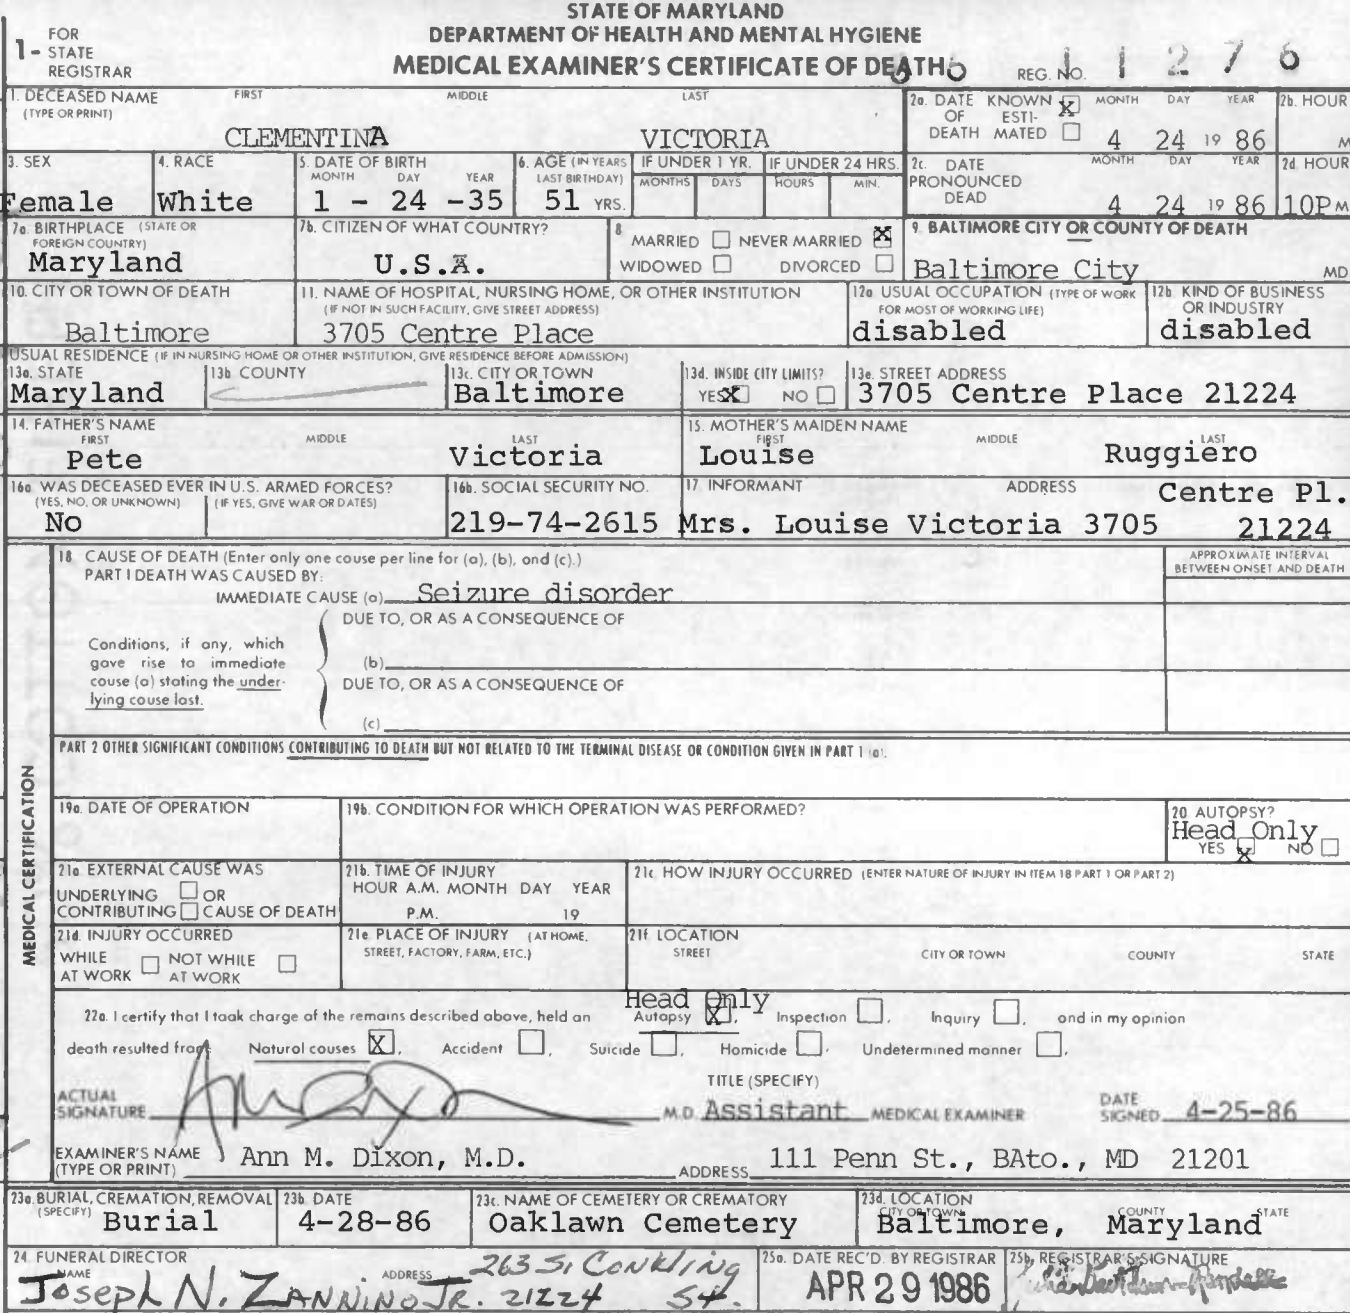 STATE OF MARYLAND
DEPARTMENT OF HEALTH AND MENTAL HYGIENE
MEDICAL EXAMINER'S CERTIFICATE OF DEATH
1- FOR STATE REGISTRAR
REG. NO. 11276
1. DECEASED NAME (TYPE OR PRINT) FIRST MIDDLE LAST
CLEMENTINA VICTORIA
2a. DATE OF DEATH KNOWN X ESTIMATED MONTH DAY YEAR
4 24 19 86
2b. HOUR M
3. SEX
Female
4. RACE
White
5. DATE OF BIRTH MONTH DAY YEAR
1 - 24 -35
6. AGE (IN YEARS LAST BIRTHDAY)
51 YRS.
IF UNDER 1 YR. MONTHS DAYS
IF UNDER 24 HRS. HOURS MIN.
2c. DATE PRONOUNCED DEAD MONTH DAY YEAR
4 24 19 86
2d. HOUR
10P M
7a. BIRTHPLACE (STATE OR FOREIGN COUNTRY)
Maryland
7b. CITIZEN OF WHAT COUNTRY?
U.S.A.
8 MARRIED NEVER MARRIED X
WIDOWED DIVORCED
9. BALTIMORE CITY OR COUNTY OF DEATH
Baltimore City MD
10. CITY OR TOWN OF DEATH
Baltimore
11. NAME OF HOSPITAL, NURSING HOME, OR OTHER INSTITUTION
(IF NOT IN SUCH FACILITY, GIVE STREET ADDRESS)
3705 Centre Place
12a. USUAL OCCUPATION (TYPE OF WORK FOR MOST OF WORKING LIFE)
disabled
12b. KIND OF BUSINESS OR INDUSTRY
disabled
USUAL RESIDENCE (IF IN NURSING HOME OR OTHER INSTITUTION, GIVE RESIDENCE BEFORE ADMISSION)
13a. STATE
Maryland
13b. COUNTY
13c. CITY OR TOWN
Baltimore
13d. INSIDE CITY LIMITS?
YES X NO
13e. STREET ADDRESS
3705 Centre Place 21224
14. FATHER'S NAME FIRST MIDDLE LAST
Pete Victoria
15. MOTHER'S MAIDEN NAME FIRST MIDDLE LAST
Louise Ruggiero
16a. WAS DECEASED EVER IN U.S. ARMED FORCES?
(YES, NO, OR UNKNOWN) (IF YES, GIVE WAR OR DATES)
No
16b. SOCIAL SECURITY NO.
219-74-2615
17. INFORMANT ADDRESS
Mrs. Louise Victoria 3705 Centre Pl. 21224
MEDICAL CERTIFICATION
18 CAUSE OF DEATH (Enter only one cause per line for (a), (b), and (c).)
APPROXIMATE INTERVAL BETWEEN ONSET AND DEATH
PART I DEATH WAS CAUSED BY:
IMMEDIATE CAUSE (a) Seizure disorder
DUE TO, OR AS A CONSEQUENCE OF
Conditions, if any, which gave rise to immediate cause (a) stating the underlying cause last.
(b)
DUE TO, OR AS A CONSEQUENCE OF
(c)
PART 2 OTHER SIGNIFICANT CONDITIONS CONTRIBUTING TO DEATH BUT NOT RELATED TO THE TERMINAL DISEASE OR CONDITION GIVEN IN PART 1 (a).
19a. DATE OF OPERATION
19b. CONDITION FOR WHICH OPERATION WAS PERFORMED?
20 AUTOPSY?
Head Only
YES X NO
21a. EXTERNAL CAUSE WAS
UNDERLYING OR
CONTRIBUTING CAUSE OF DEATH
21b. TIME OF INJURY
HOUR A.M. MONTH DAY YEAR
P.M. 19
21c. HOW INJURY OCCURRED (ENTER NATURE OF INJURY IN ITEM 18 PART 1 OR PART 2)
21d. INJURY OCCURRED
WHILE AT WORK NOT WHILE AT WORK
21e. PLACE OF INJURY (AT HOME, STREET, FACTORY, FARM, ETC.)
21f. LOCATION
STREET CITY OR TOWN COUNTY STATE
Head Only
22a. I certify that I took charge of the remains described above, held an Autopsy X, Inspection, Inquiry, and in my opinion
death resulted from Natural causes X, Accident, Suicide, Homicide, Undetermined manner.
ACTUAL SIGNATURE
M.D. TITLE (SPECIFY) Assistant MEDICAL EXAMINER
DATE SIGNED 4-25-86
EXAMINER'S NAME (TYPE OR PRINT) Ann M. Dixon, M.D.
ADDRESS 111 Penn St., BAto., MD 21201
23a. BURIAL, CREMATION, REMOVAL (SPECIFY)
Burial
23b. DATE
4-28-86
23c. NAME OF CEMETERY OR CREMATORY
Oaklawn Cemetery
23d. LOCATION CITY OR TOWN COUNTY STATE
Baltimore, Maryland
24. FUNERAL DIRECTOR
NAME ADDRESS
Joseph N. ZANNINO JR. 263 S. CONKLING St. 21224
25a. DATE REC'D. BY REGISTRAR
APR 29 1986
25b. REGISTRAR'S SIGNATURE